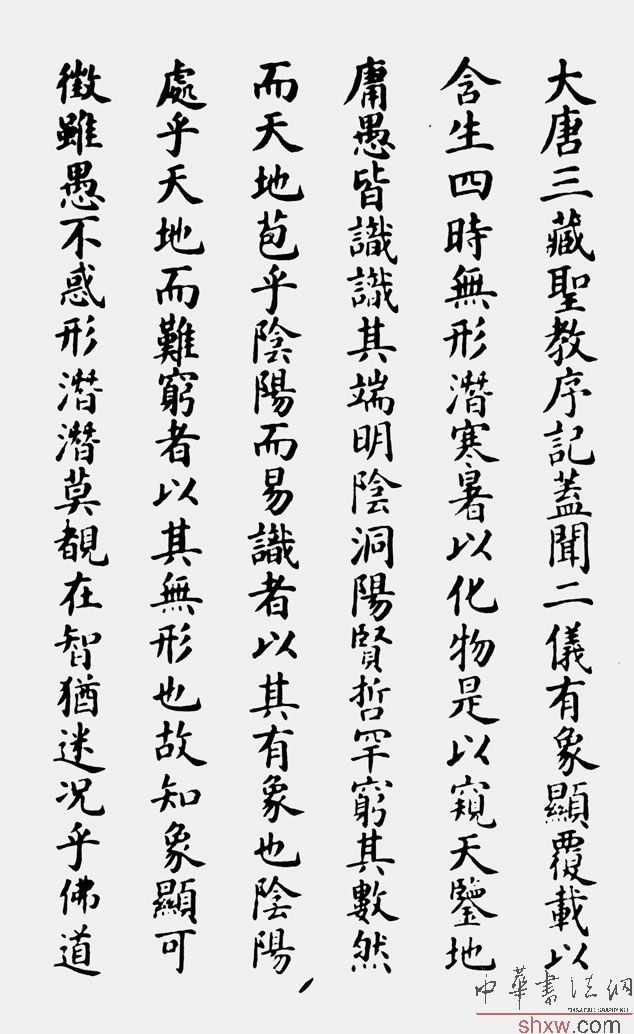 大唐三藏聖教序記蓋聞二儀有象顯覆載以
含生四時無形潛寒暑以化物是以窺天鑒地
庸愚皆識識其端明陰洞陽賢哲罕窮其數然
而天地苞乎陰陽而易識者以其有象也陰陽
處乎天地而難窮者以其無形也故知象顯可
徵雖愚不惑形潛潛莫覩在智猶迷况乎佛道
中華書法網
shxw.com